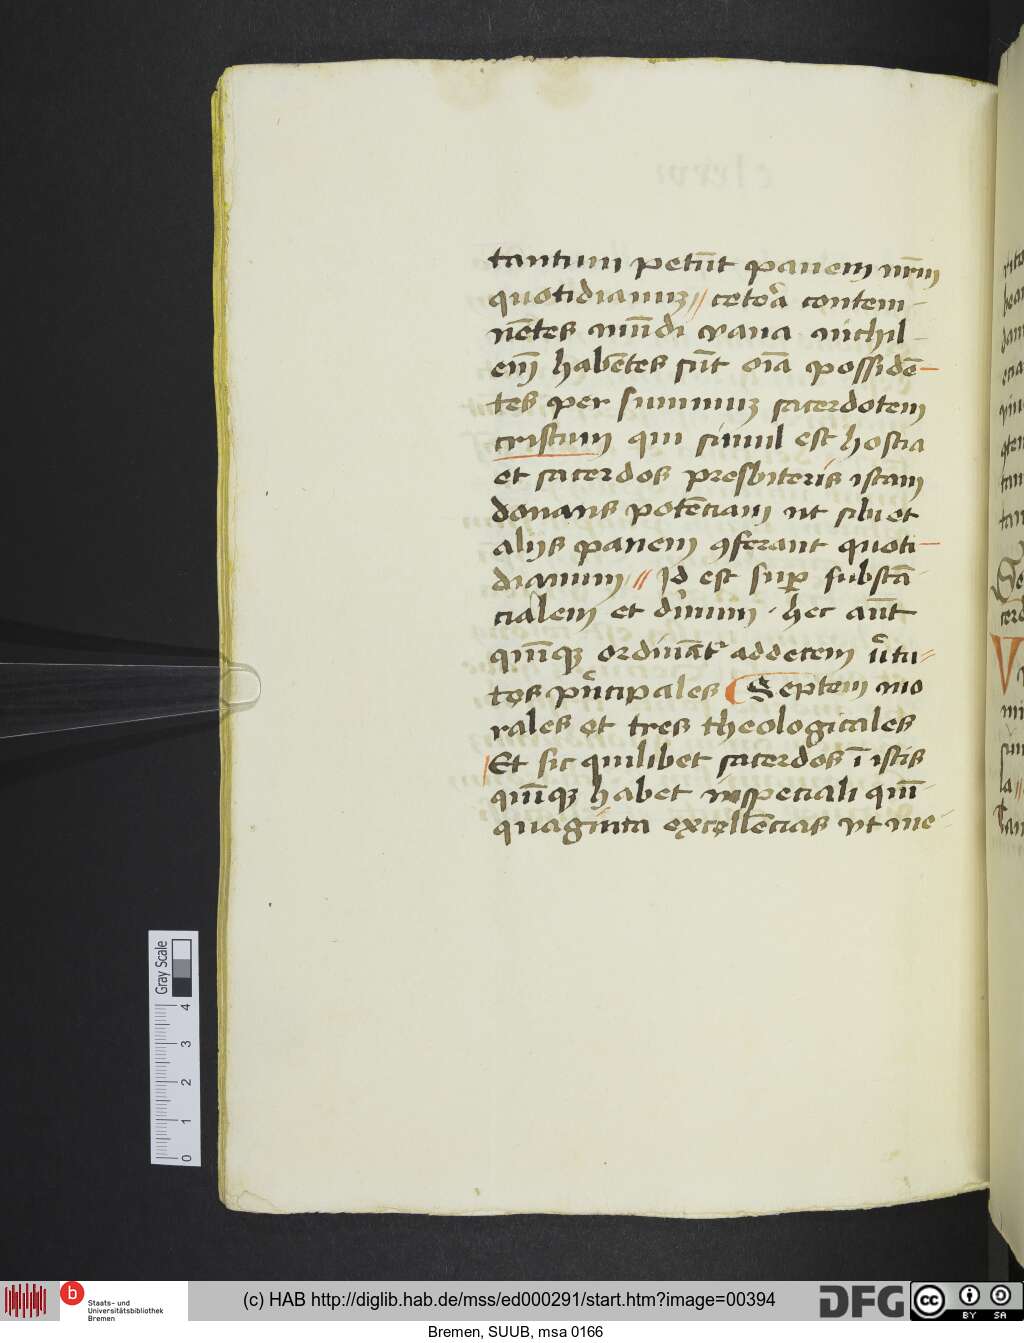 tantum petūt panem nr̄m
quotidianuʒ // cetoꝛa contem-
nētes mūdi vana nichil-
em̄ habētes sūt oīa possidē-
tes per summuʒ sacerdotem
cristum qui simul est hostia
et sacerdos presbiteris istam
donans potēciam ut sibi et
alijs panem ꝯferant quoti-
dianum // Id est suꝑ substā-
cialem et diuinum · hec aūt
quīqꝫ ordināt᷑ addecem v̄tu-
tes pⁱncipales Septem mo
rales et tres theologicales
Et sic quilibet sacerdos ī istis
quīqꝫ habet inspeciali quī-
quaginta excellēcias vt me-
Gray Scale
4
3
2
1
0
b
Staats- und
Universitätsbibliothek
Bremen
(c) HAB http://diglib.hab.de/mss/ed000291/start.htm?image=00394
DFG
cc BY SA
Bremen, SUUB, msa 0166